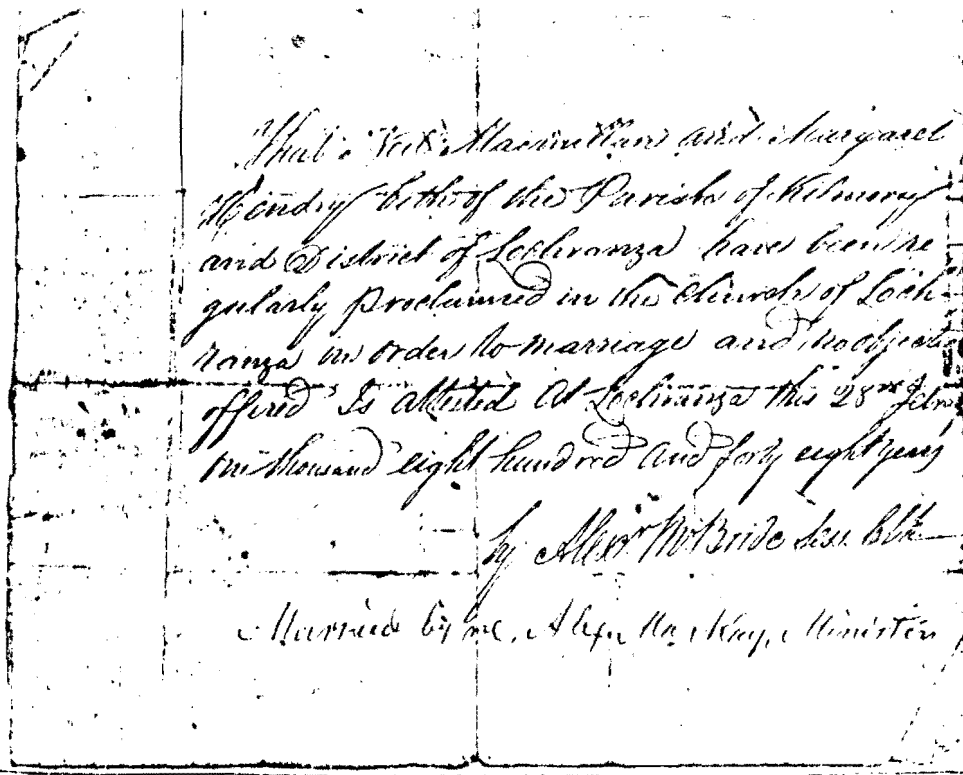 That Neil Macmillan and Margaret
Hendry both of the Parish of Kilmory
and District of Lochranza have been re
gularly proclaimed in the Church of Loch
ranza in order to marriage and no objection
offered Is attested At Lochranza this 28th Febry
one thousand eight hundred and forty eight years
by Alexr McBride Sess. Clk
Married by me, Alexr McKay, Minister